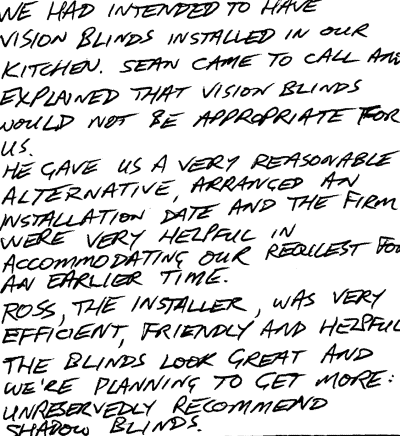 WE HAD INTENDED TO HAVE
VISION BLINDS INSTALLED IN OUR
KITCHEN. SEAN CAME TO CALL AND
EXPLAINED THAT VISION BLINDS
WOULD NOT BE APPROPRIATE FOR
US.
HE GAVE US A VERY REASONABLE
ALTERNATIVE, ARRANGED AN
INSTALLATION DATE AND THE FIRM
WERE VERY HELPFUL IN
ACCOMMODATING OUR REQUEST FOR
AN EARLIER TIME.
ROSS, THE INSTALLER, WAS VERY
EFFICIENT, FRIENDLY AND HELPFUL
THE BLINDS LOOK GREAT AND
WE'RE PLANNING TO GET MORE:
UNRESERVEDLY RECOMMEND
SHADOW BLINDS.